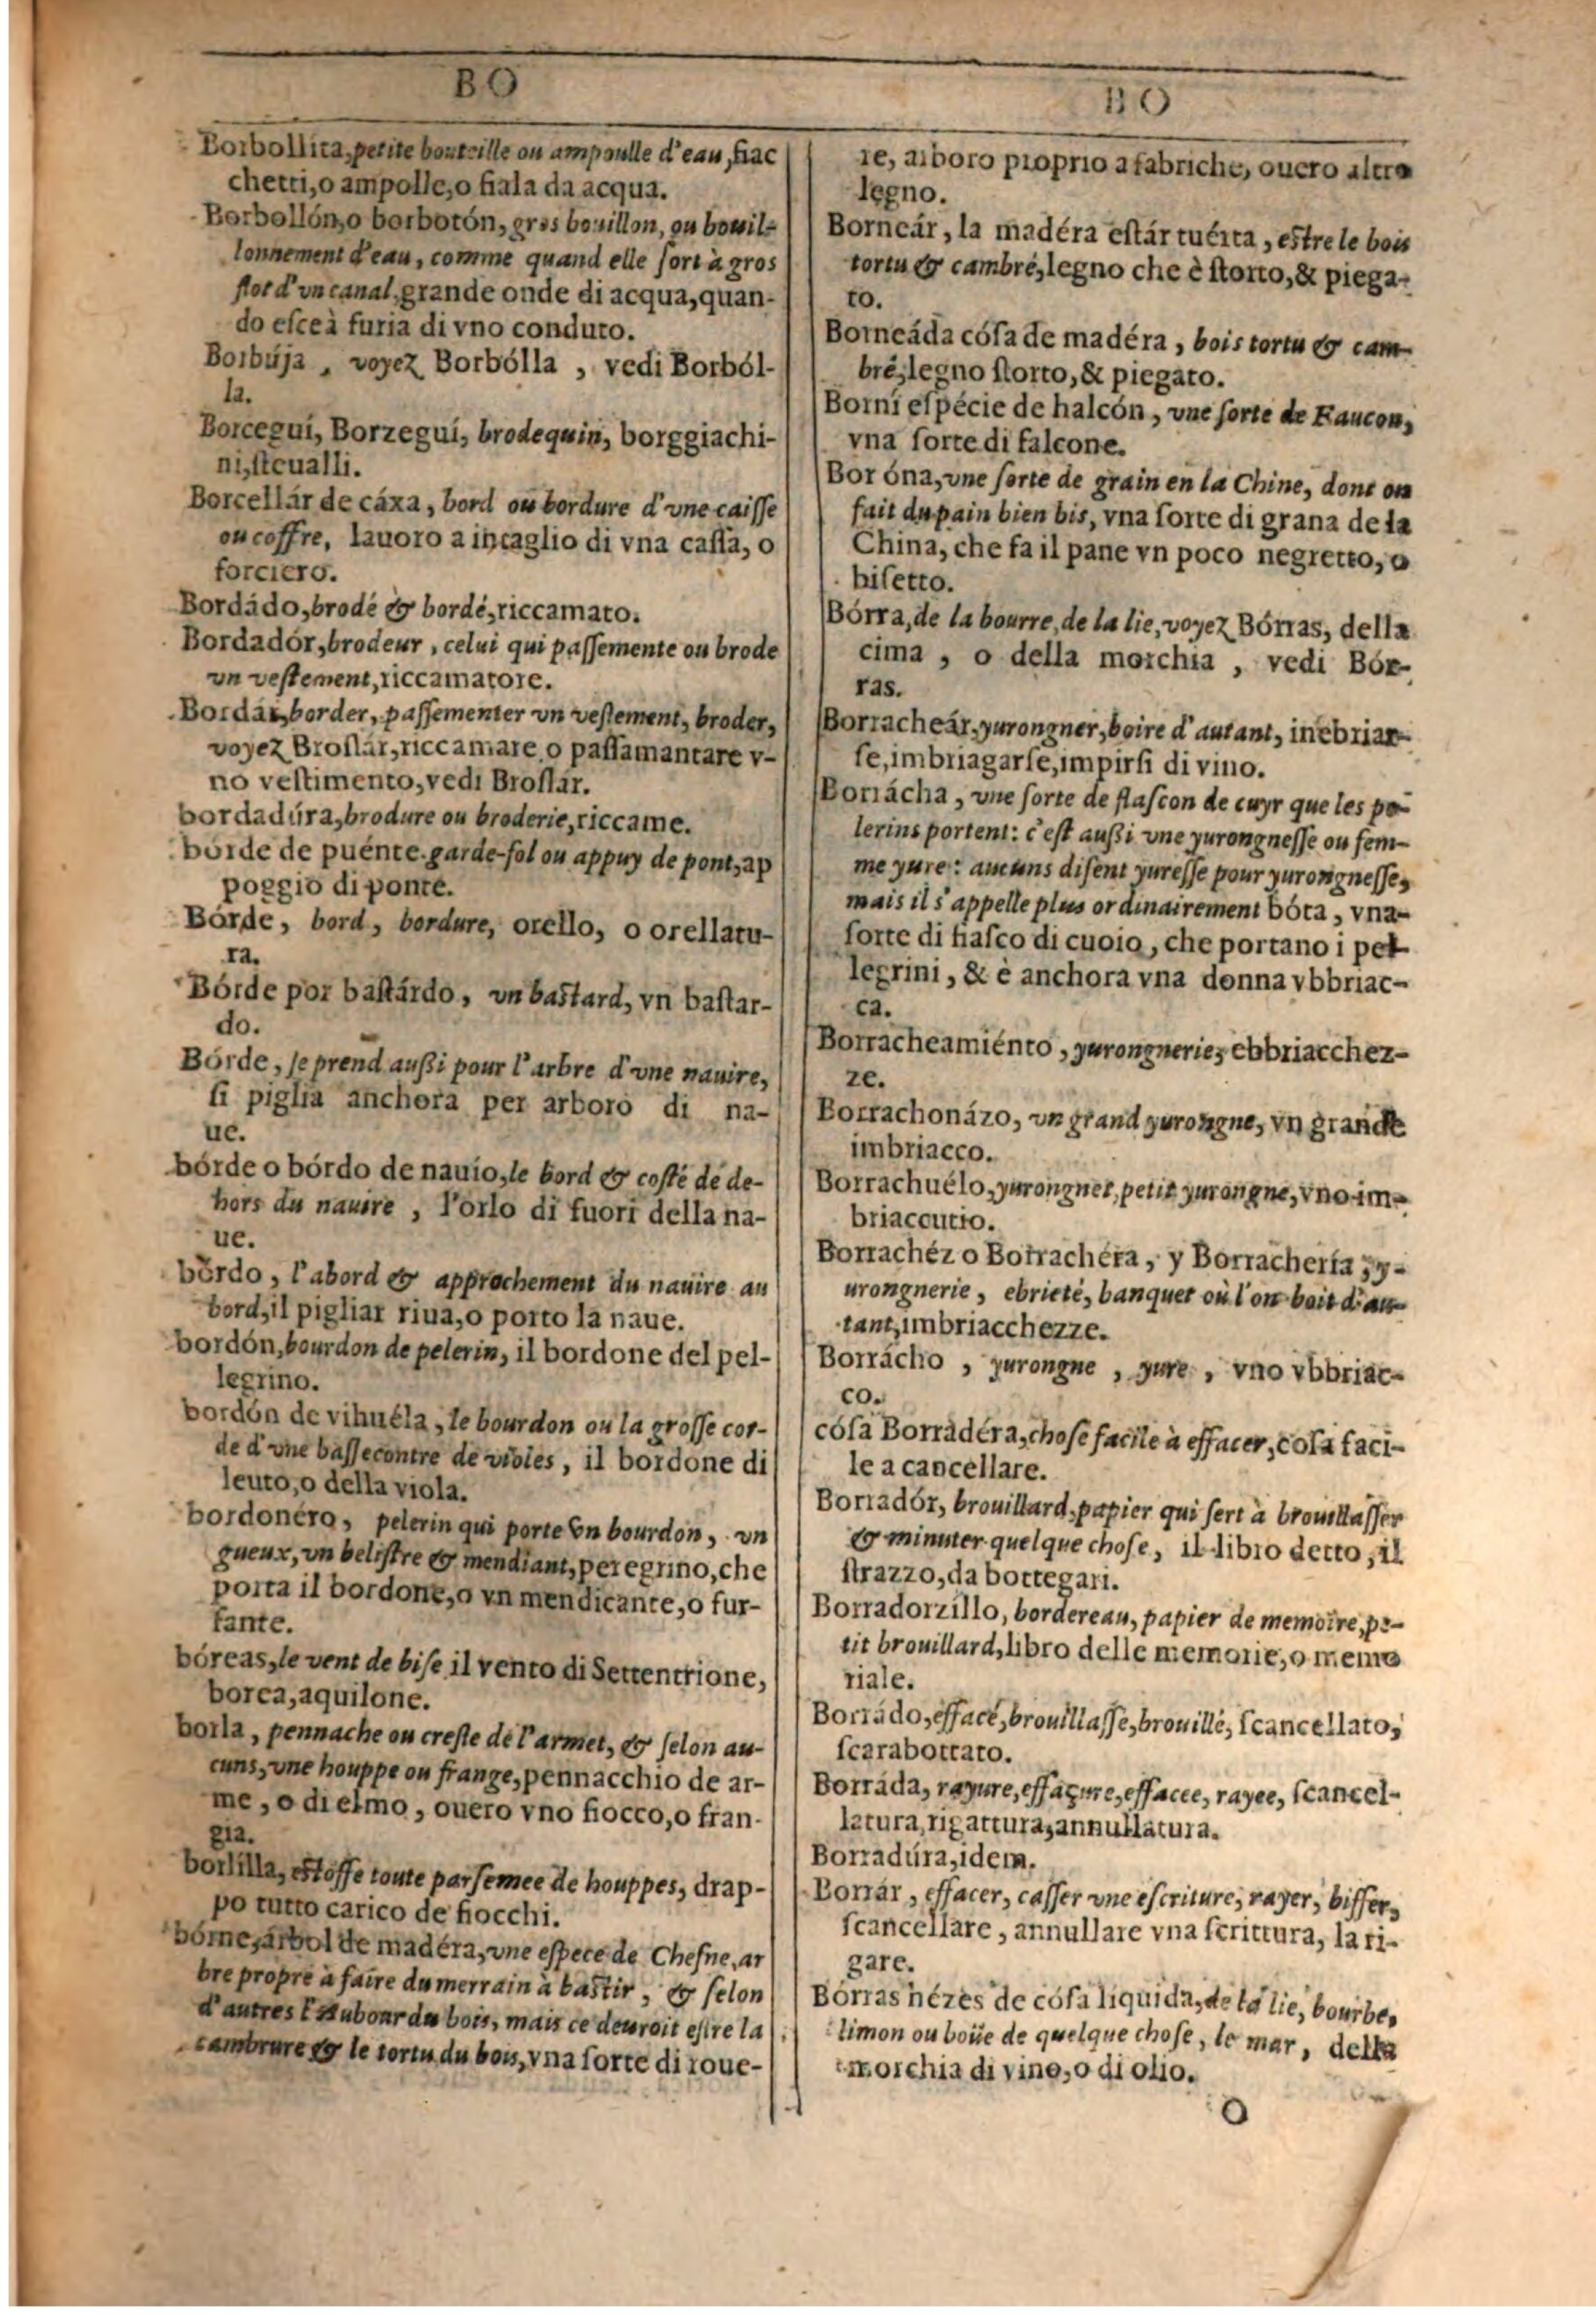 BO
Borbollíta, petite bouteille ou ampoulle d'eau, fiac
chetti, o ampolle, o fiala da acqua.
Borbollón, o borbotón, gros bouillon, ou bouil-
lonnement d'eau, comme quand elle ſort à gros
flot d'vn canal, grande onde di acqua, quan-
do eſce à furia di vno conduto.
Borbúja, voyez Borbólla, vedi Borból-
la.
Borceguí, Borzeguí, brodequin, borggiachi-
ni, ſteualli.
Borcellár de cáxa, bord ou bordure d'vne caiſſe
ou coffre, lauoro a intaglio di vna caſſa, o
forciero.
Bordádo, brodé & bordé, riccamato.
Bordadór, brodeur, celui qui paſſemente ou brode
vn veſtement, riccamatore.
Bordár, border, paſſementer vn veſtement, broder,
voyez Broſlár, riccamare o paſſamantare v-
no veſtimento, vedi Broſlár.
bordadúra, brodure ou broderie, riccame.
bórde de puénte. garde-fol ou appuy de pont, ap
poggio di ponte.
Bórde, bord, bordure, orello, o orellatu-
ra.
Bórde por baſtárdo, vn baſtard, vn baſtar-
do.
Bórde, ſe prend außi pour l'arbre d'vne nauire,
ſi piglia anchora per arboro di na-
ue.
bórde o bórdo de nauío, le bord & coſté de de-
hors du nauire, l'orlo di fuori della na-
ue.
bórdo, l'abord & approchement du nauire au
bord, il pigliar riua, o porto la naue.
bordón, bourdon de pelerin, il bordone del pel-
legrino.
bordón de vihuéla, le bourdon ou la groſſe cor-
de d'vne baſſecontre de violes, il bordone di
leuto, o della viola.
bordonéro, pelerin qui porte vn bourdon, vn
gueux, vn beliſtre & mendiant, peregrino, che
porta il bordone, o vn mendicante, o fur-
fante.
bóreas, le vent de biſe, il vento di Settentrione,
borea, aquilone.
borla, pennache ou creſte de l'armet, & ſelon au-
cuns, vne houppe ou frange, pennacchio de ar-
me, o di elmo, ouero vno fiocco, o fran-
gia.
borlilla, eſtoffe toute parſemee de houppes, drap-
po tutto carico de fiocchi.
bórne, árbol de madéra, vne eſpece de Cheſne, ar
bre propre à faire du merrain à baſtir, & ſelon
d'autres l'Aubour du bois, mais ce deuroit eſtre la
cambrure & le tortu du bois, vna ſorte di roue-
BO
re, arboro proprio a fabriche, ouero altro
legno.
Borneár, la madéra eſtár tuérta, eſtre le bois
tortu & cambré, legno che è ſtorto, & piega-
to.
Borneáda cóſa de madéra, bois tortu & cam-
bré, legno ſtorto, & piegato.
Borní eſpécie de halcón, vne ſorte de Faucon,
vna ſorte di falcone.
Bor óna, vne ſorte de grain en la Chine, dont on
fait du pain bien bis, vna ſorte di grana de la
China, che fa il pane vn poco negretto, o
biſetto.
Bórra, de la bourre, de la lie, voyez Bórras, della
cima, o della morchia, vedi Bór-
ras.
Borracheár, yurongner, boire d'autant, inebriar-
ſe, imbriagarſe, impirſi di vino.
Borrácha, vne ſorte de flaſcon de cuyr que les pe-
lerins portent: c'eſt außi vne yurongneſſe ou fem-
me yure: aucuns diſent yureſſe pour yurongneſſe,
mais il s'appelle plus ordinairement bóta, vna-
ſorte di fiaſco di cuoio, che portano i pel-
legrini, & è anchora vna donna vbbriac-
ca.
Borracheamiénto, yurongnerie, ebbriacchez-
ze.
Borrachonázo, vn grand yurongne, vn grande
imbriacco.
Borrachuélo, yurongnet, petit yurongne, vno im-
briaccutio.
Borrachéz o Borrachéra, y Borrachería, y-
urongnerie, ebrieté, banquet où l'on boit d'au-
tant, imbriacchezze.
Borrácho, yurongne, yure, vno vbbriac-
co.
cóſa Borradéra, choſe facile à effacer, coſa faci-
le a cancellare.
Borradór, brouillard, papier qui ſert à brouillaſſer
& minuter quelque choſe, il libro detto, il
ſtrazzo, da bottegari.
Borradorzíllo, bordereau, papier de memoire, pe-
tit brouillard, libro delle memorie, o memo
riale.
Borrádo, effacé, brouillaſſe, brouillé, ſcancellato,
ſcarabottato.
Borráda, rayure, effaçure, effacee, rayee, ſcancel-
latura, rigattura, annullatura.
Borradúra, idem.
Borrár, effacer, caſſer vne eſcriture, rayer, biffer,
ſcancellare, annullare vna ſcrittura, la ri-
gare.
Bórras hézes de cóſa líquida, de la lie, bourbe,
limon ou boüe de quelque choſe, le mar, della
morchia di vino, o di olio.
O